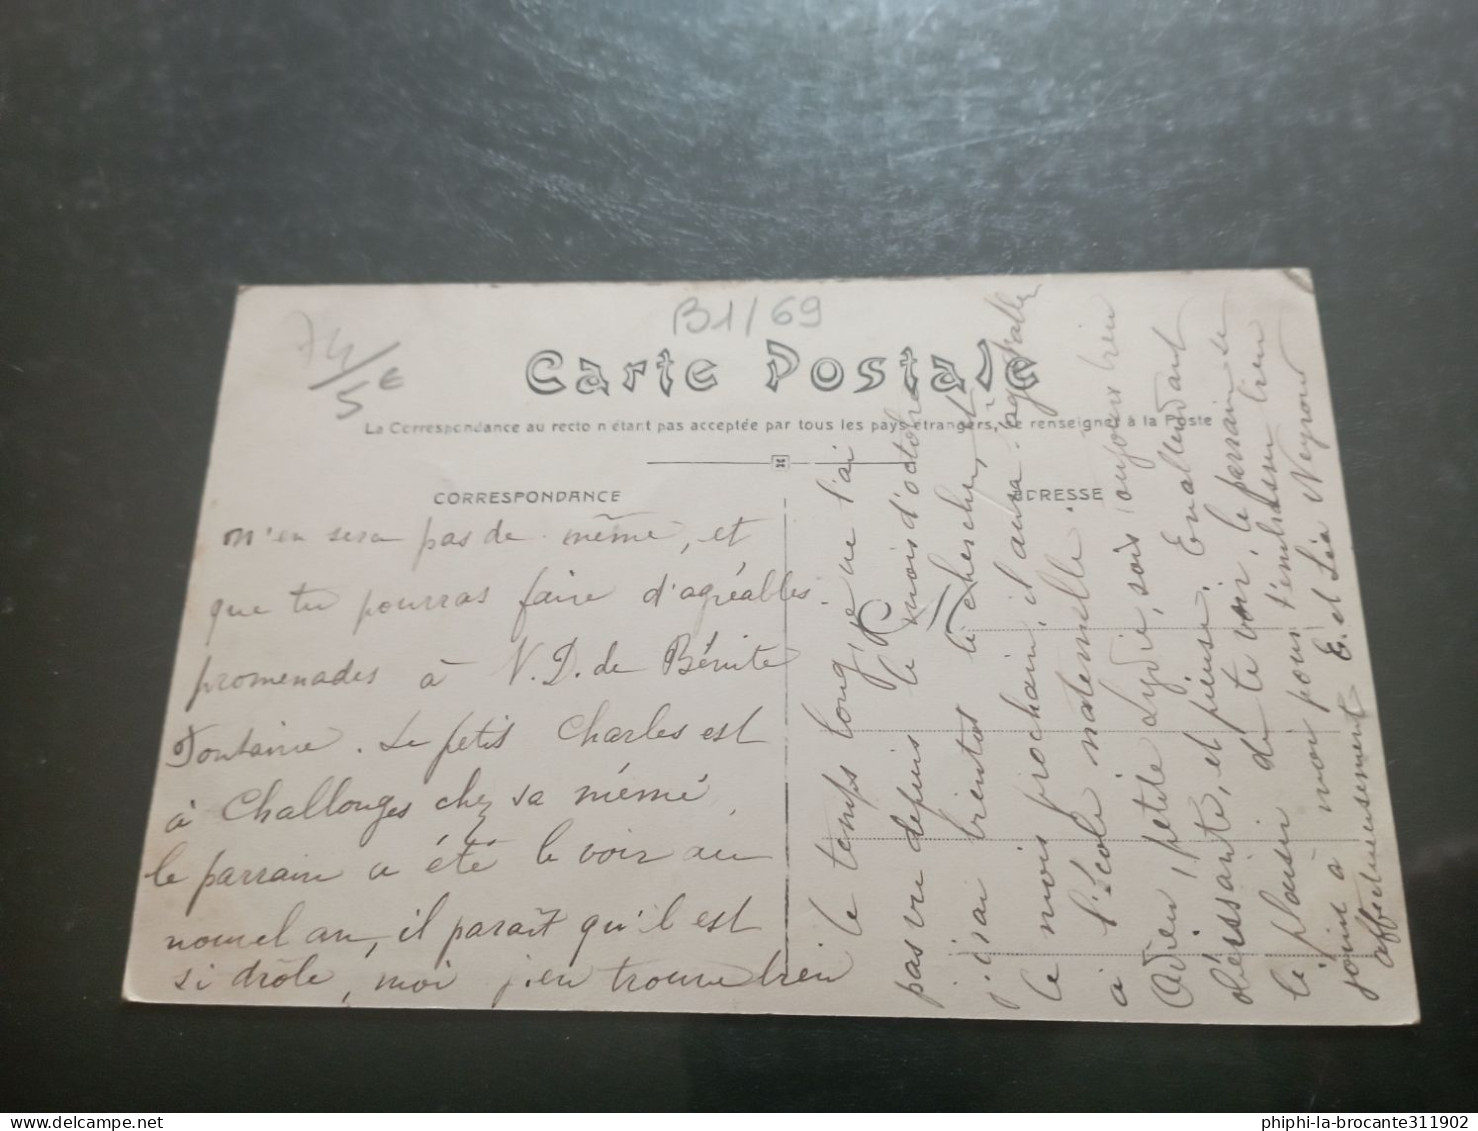 74/5€
B1/69
Carte Postale
La Correspondance au recto n'étant pas acceptée par tous les pays étrangers, se renseigner à la Poste
CORRESPONDANCE
ADRESSE
n'en sera pas de même, et
que tu pourras faire d'agréables
promenades à N. D. de Bénite
Fontaine. Le petit Charles est
à Challonges chez sa mémé
le parrain a été le voir au
nouvel an, il parait qu'il est
si drôle, moi j'en trouve bien
le temps long, je ne l'ai
pas vu depuis le mois d'octobre
j'irai bientôt le chercher, et
le mois prochain, il aura l'age d'aller
à l'école maternelle.
Adieu, petite Lydie, sois toujours bien
obéissante, et pieuse. En attendant
le plaisir de te voir, le parrain se
joint à moi pour t'embrasser bien
affectueusement E. et Léa Neyroud
phiphi-la-brocante311902